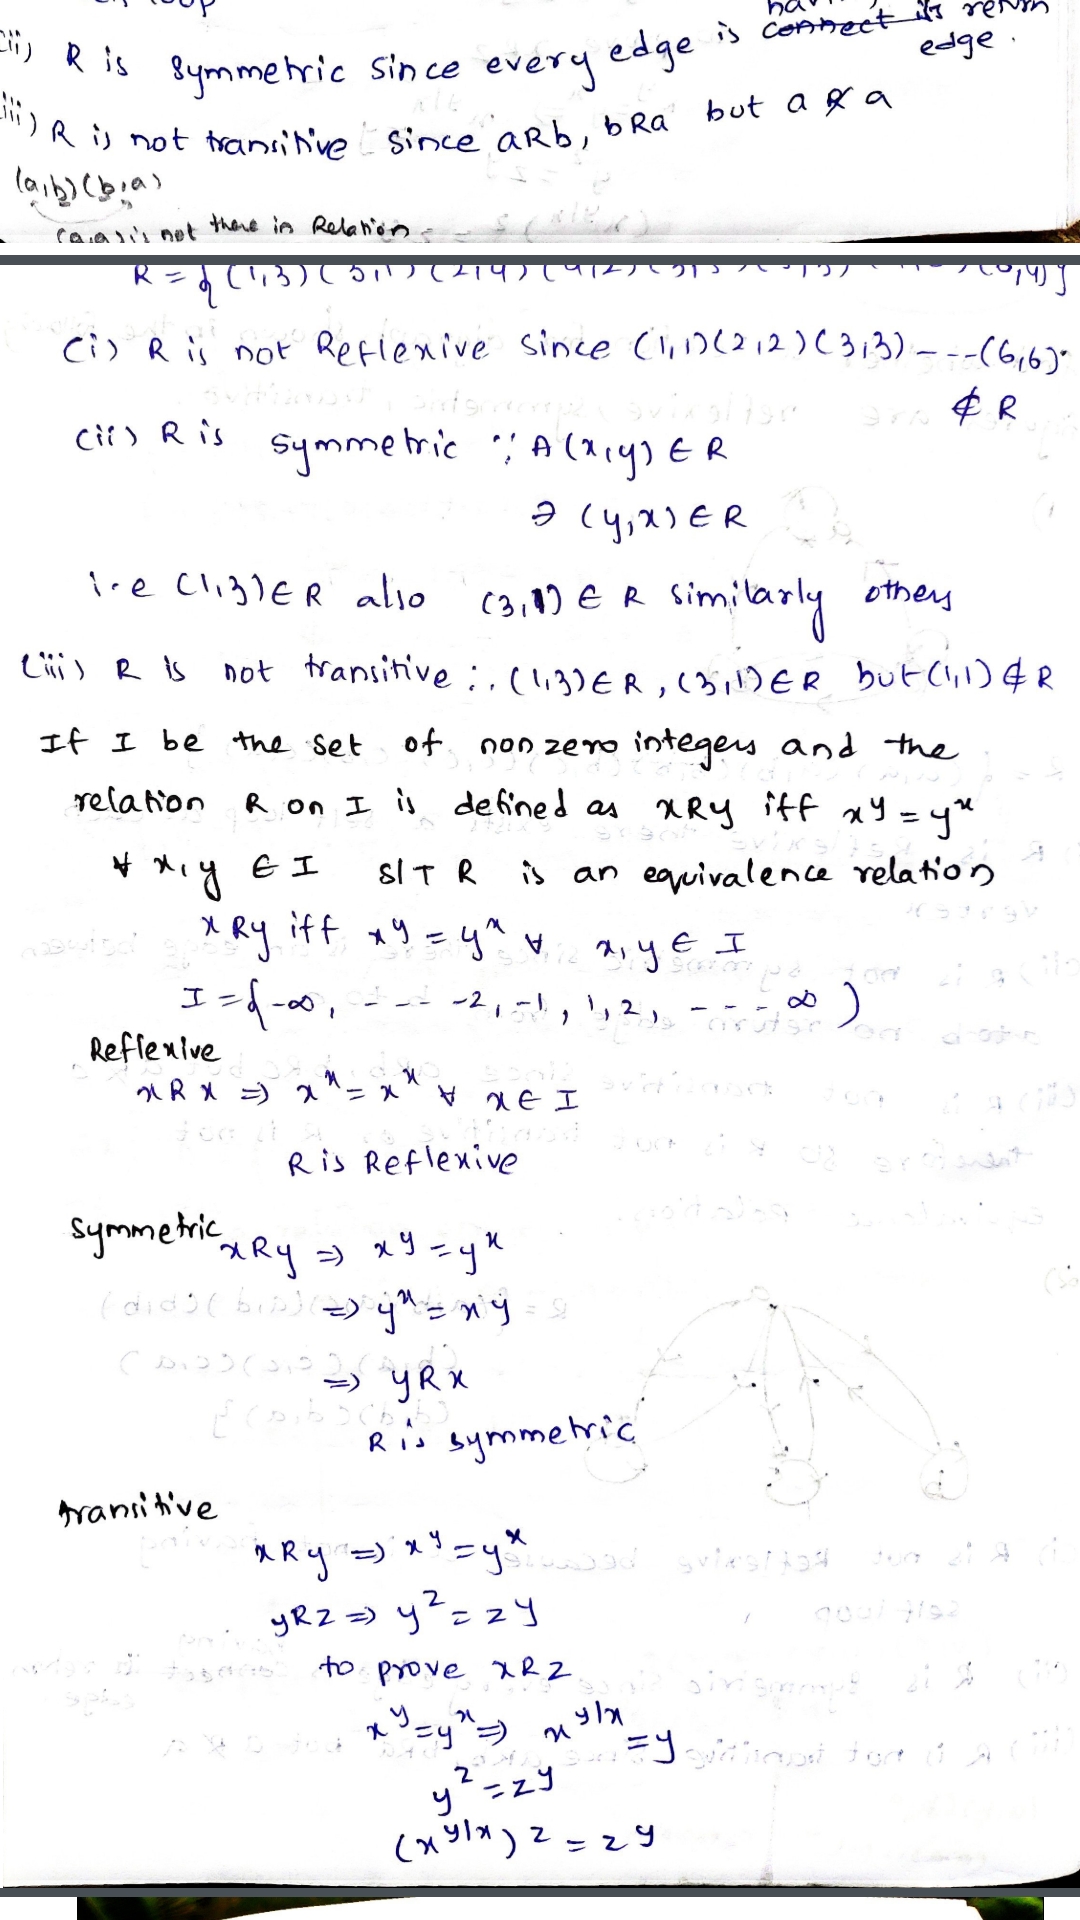 loop
(ii) R is symmetric since every edge is having connect its return
edge.
(iii) R is not transitive since aRb, bRa but a R̸ a
(a,b)(b,a)
(a,a) is not there in Relation
R = { (1,3) (3,1) (2,4) (4,2)
(i) R is not Reflexive since (1,1)(2,2)(3,3)----(6,6)
∉ R
(ii) R is symmetric ∵ ∀(x,y) ∈ R
∃ (y,x) ∈ R
i.e (1,3) ∈ R also (3,1) ∈ R similarly others
(iii) R is not transitive ∴ (1,3) ∈ R, (3,1) ∈ R but (1,1) ∉ R
If I be the set of non zero integers and the
relation R on I is defined as xRy iff x^y = y^x
∀ x,y ∈ I S/T R is an equivalence relation
x Ry iff x^y = y^x ∀ x,y ∈ I
I = { -∞, ---- -2, -1, 1, 2, ---- ∞ )
Reflexive
xRx ⇒ x^x = x^x ∀ x ∈ I
R is Reflexive
Symmetric
xRy ⇒ x^y = y^x
⇒ y^x = x^y
⇒ yRx
R is symmetric
transitive
xRy ⇒ x^y = y^x
yRz ⇒ y^z = z^y
to prove xRz
x^y = y^x ⇒ x^y/x = y
y^z = z^y
(x^y/x)^z = z^y